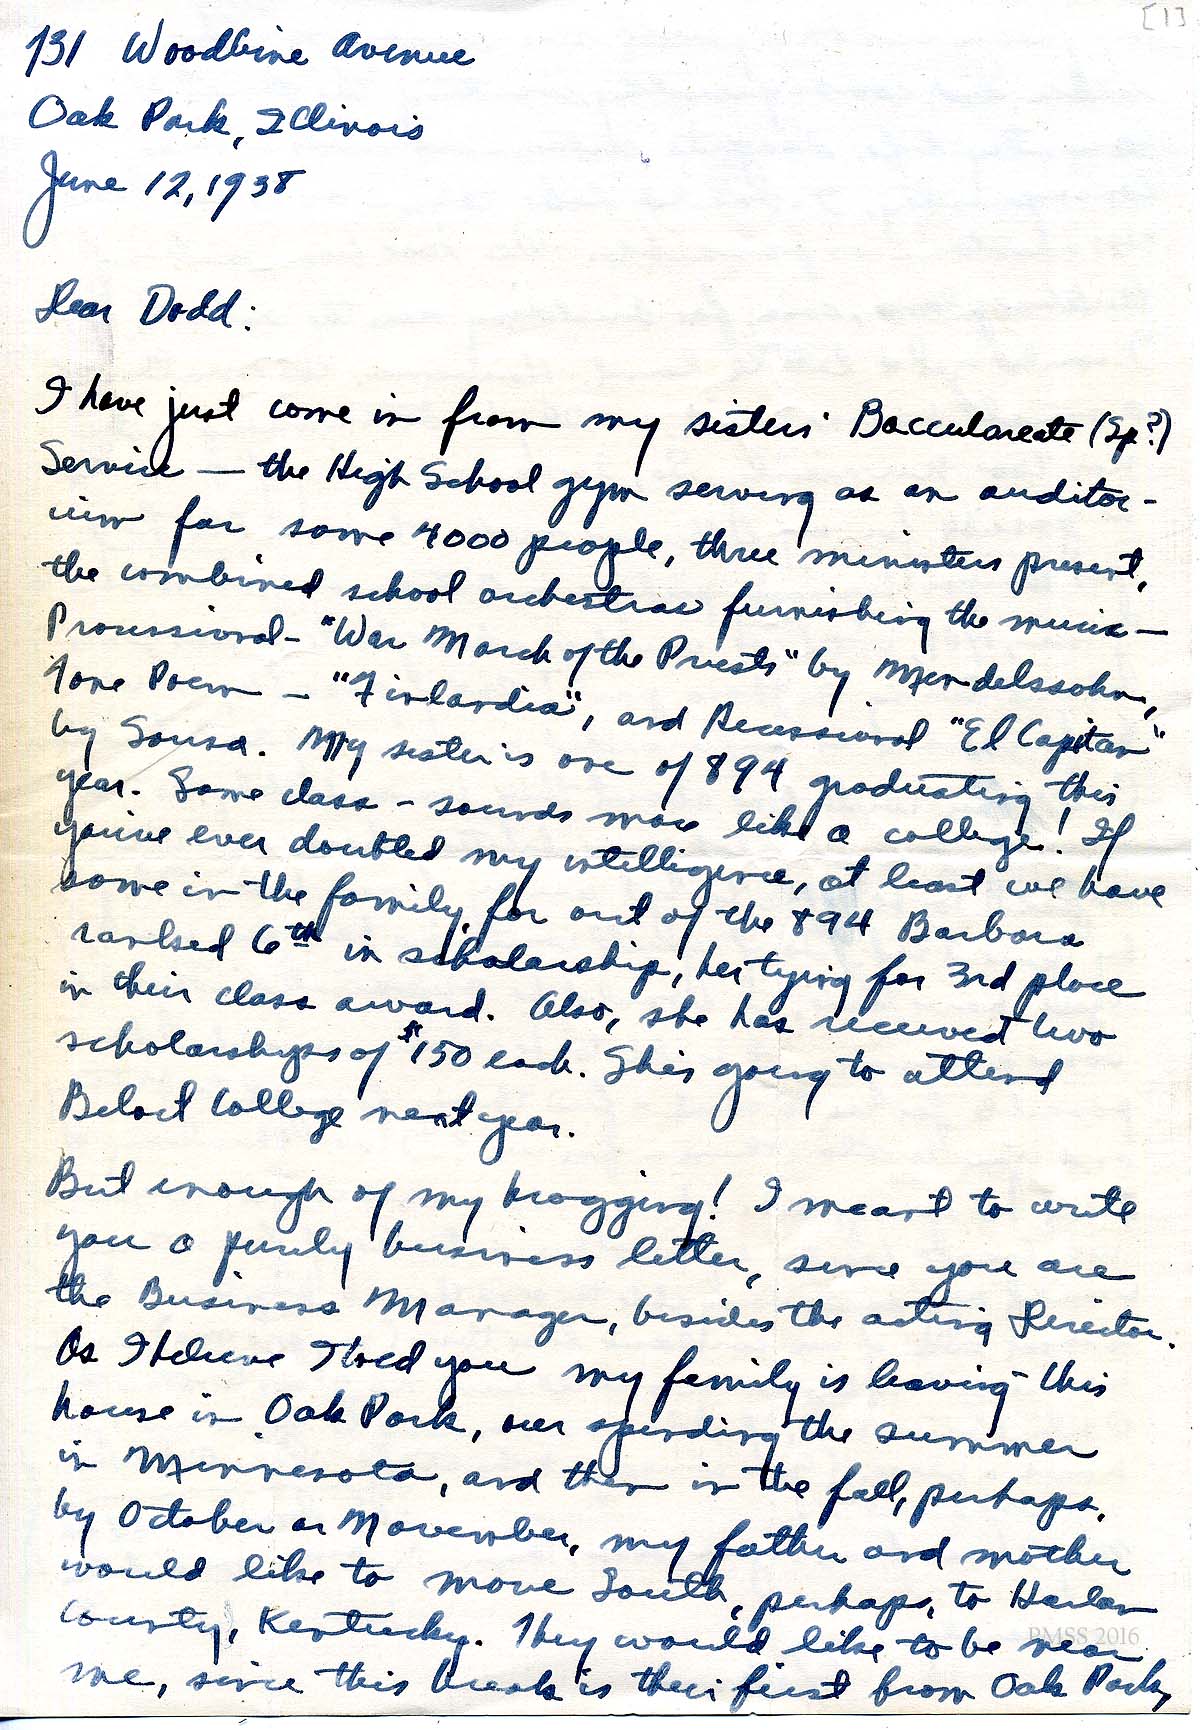 [1]
731 Woodbine Avenue
Oak Park, Illinois
June 12, 1938
Dear Dodd:
I have just come in from my sisters' Bacculareate (Sp?)
Service — the High School gym serving as an auditor-
ium for some 4000 people, three ministers present,
the combined school orchestras furnishing the music —
Processional - "War March of the Priests" by Mendelssohn,
Tone Poem — "Finlandia", and Recessional "El Capitan"
by Sousa. My sister is one of 894 graduating this
year. Some class - sounds more like a college! If
you've ever doubted my intelligence, at least we have
some in the family, for out of the 894 Barbara
ranked 6th in scholarship, her tying for 3rd place
in their class award. Also, she has received two
scholarships of $150 each. She's going to attend
Beloit College next year.
But enough of my bragging! I meant to write
you a purely business letter, since you are
the Business Manager, besides the acting Director.
As I believe I told you my family is leaving this
house in Oak Park, over spending the summer
in Minnesota, and then in the fall, perhaps,
by October or November, my father and mother
would like to move South, perhaps, to Harlan
County, Kentucky. They would like to be near
me, since this break is their first from Oak Park,
PMSS 2016